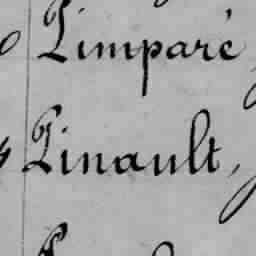 Limparé
Pinault,